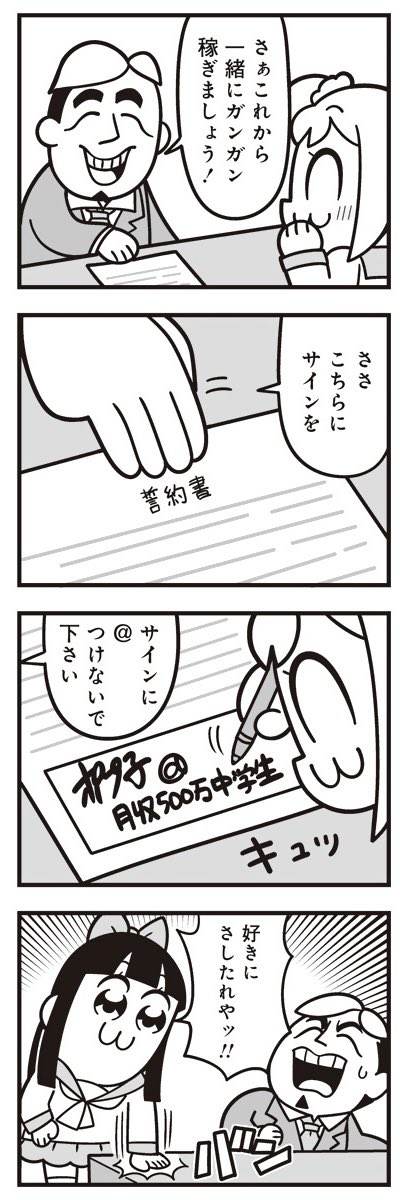 さぁこれから
一緒にガンガン
稼ぎましょう！
ささ
こちらに
サインを
誓約書
サインに
@
つけないで
下さい
ポプ子@
月収500万中学生
キュッ
好きに
さしたれやッ!!
バン